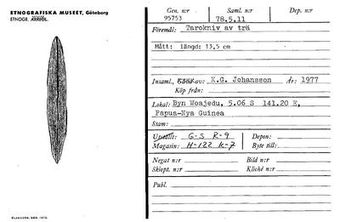 ETNOGRAFISKA MUSEET, Göteborg
ETNOGR.
Gen. nr Saml. nr Dep. nr
95753 78.5.11
Föremål: Tarokniv av trä
Mått: längd: 13,5 cm
Insaml. K.G. Johansson År: 1977
Köp från:
Lokal: Byn Moajedu, 5.06 S 141.20 E,
Papua-Nya Guinea
Stam:
Uppställt: G-S R-9 Depon:
Magasin: H-122 K-7 Byte till:
Negat n:r Bild n:r
Skiopt. n:r Kliché n:r
Publ.